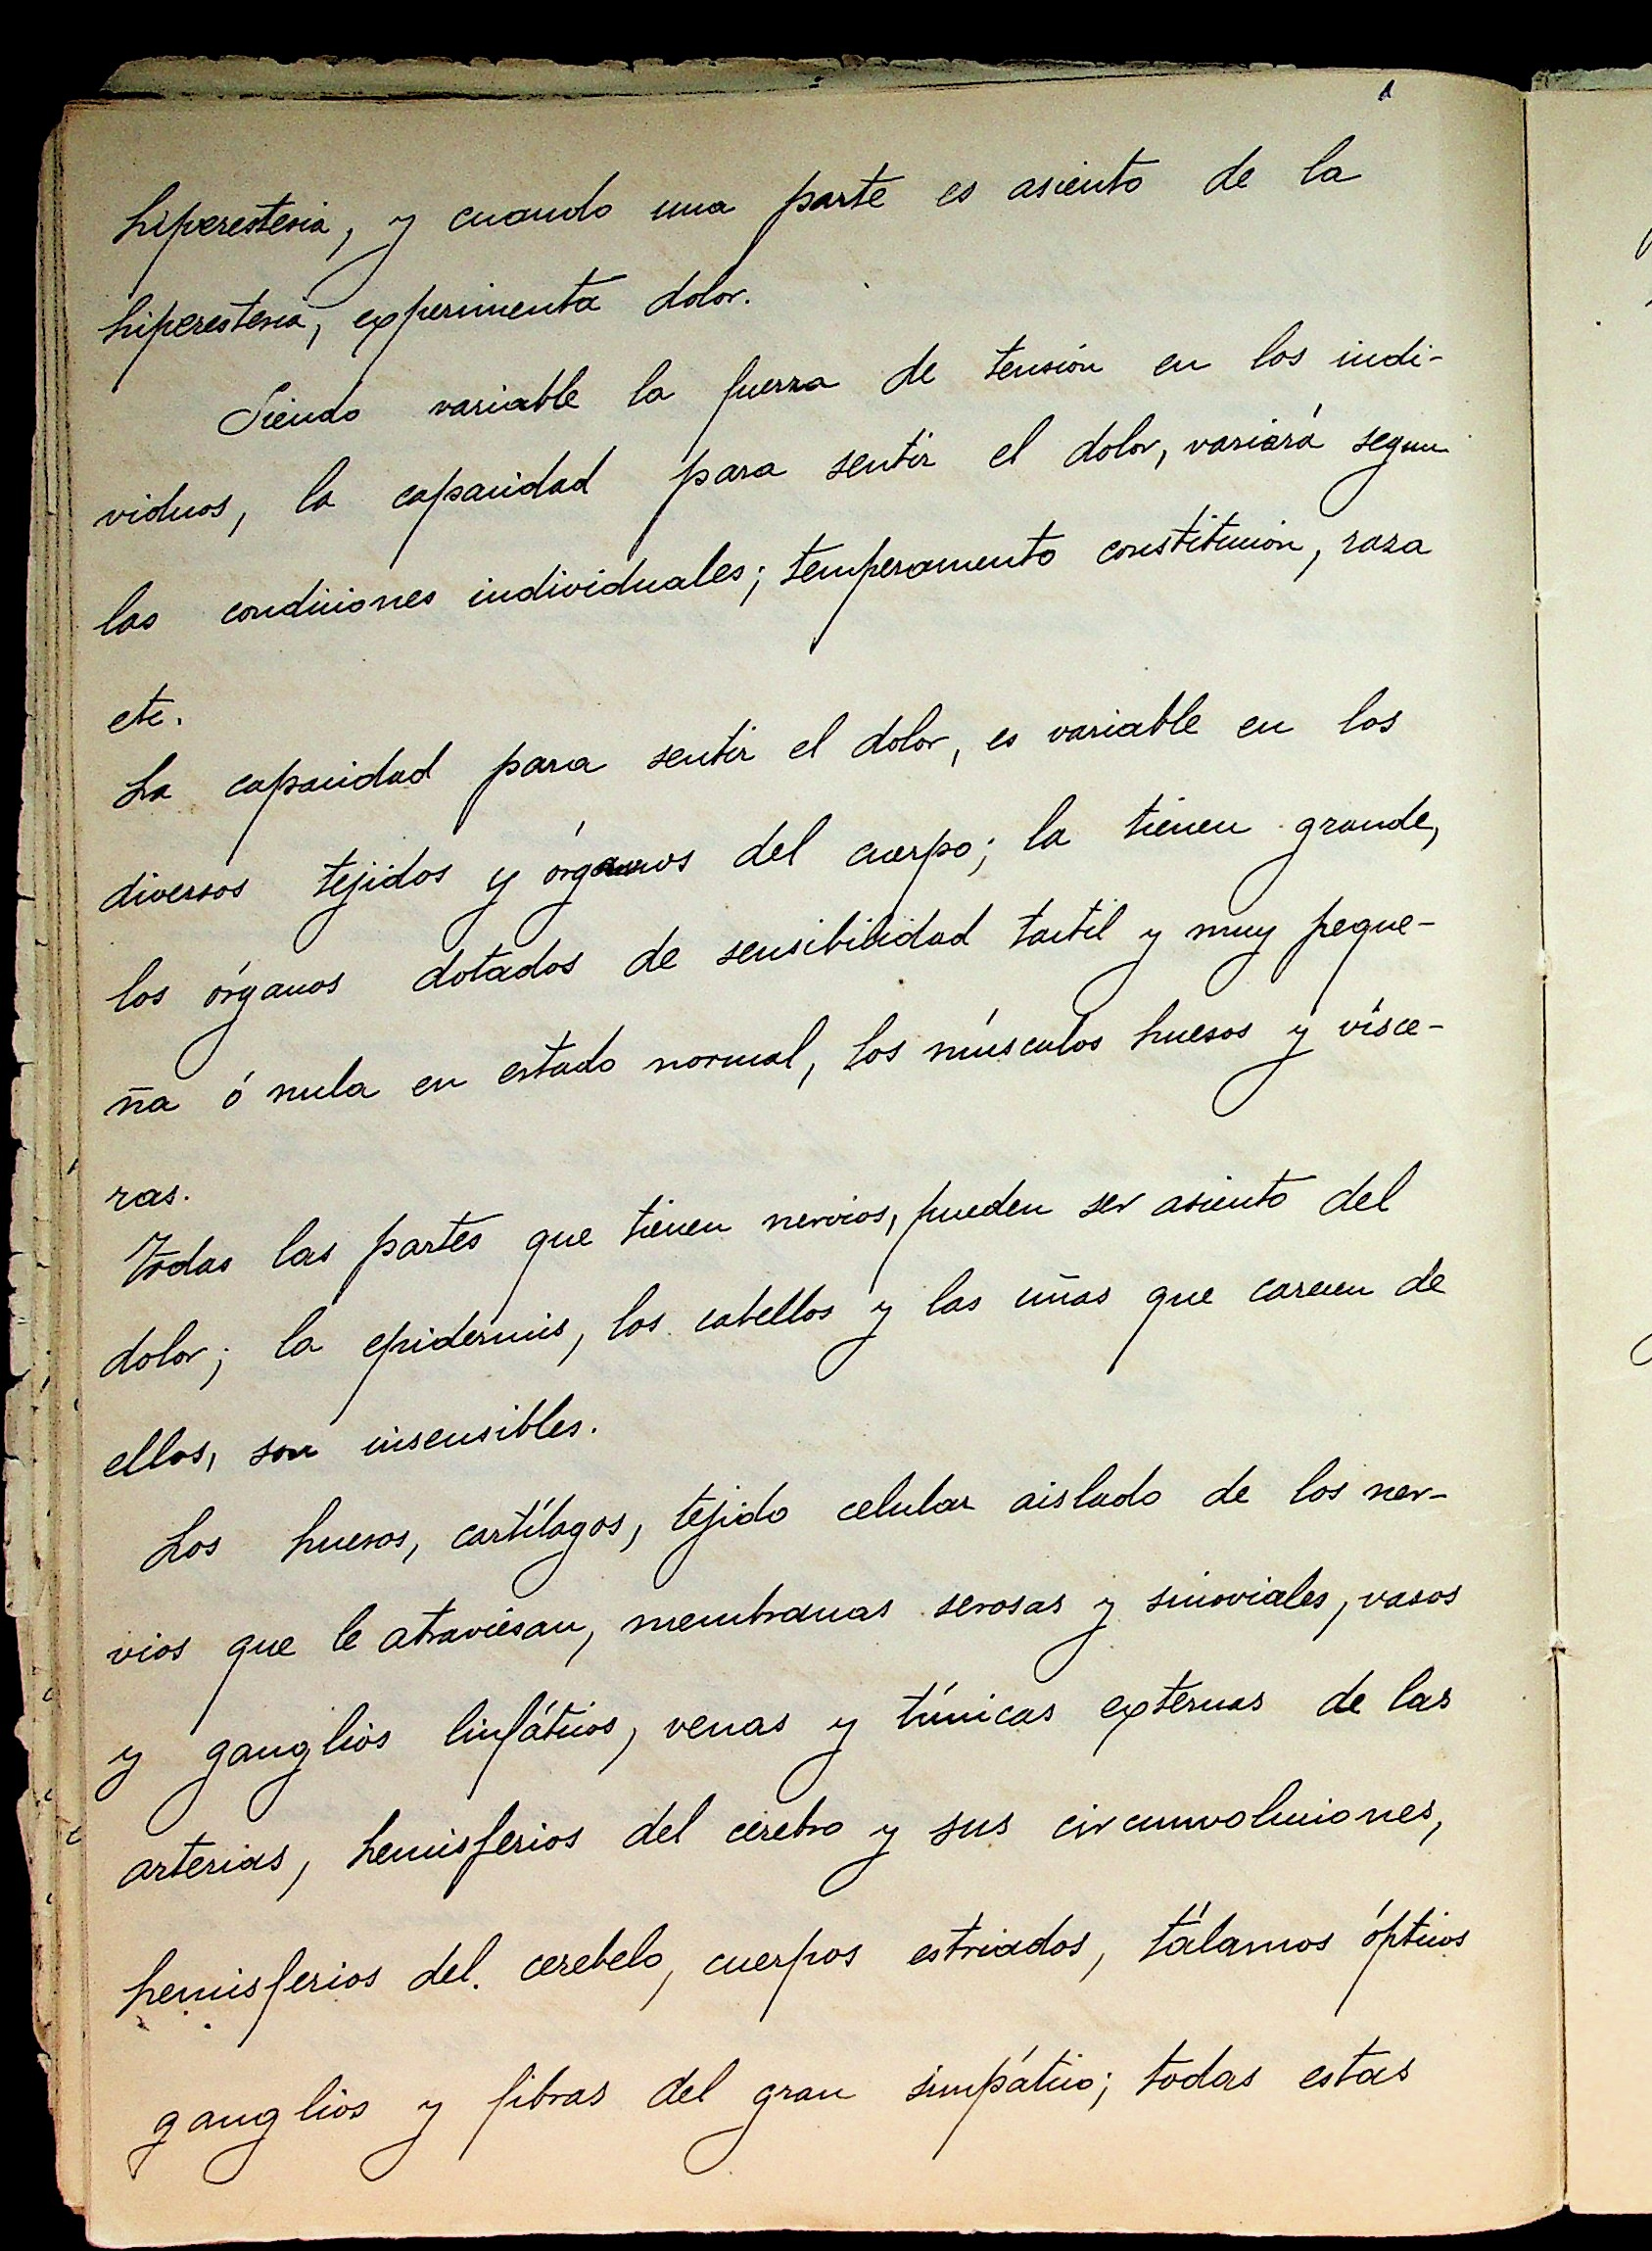 hiperestesia, y cuando una parte es asiento de la
hiperestesia, experimenta dolor.
Siendo variable la fuerza de tensión en los indi-
viduos, la capacidad para sentir el dolor, variará segun
las condiciones individuales; temperamento constitucion, raza
etc.
La capacidad para sentir el dolor, es variable en los
diversos tejidos y órganos del cuerpo; la tienen grande,
los órganos dotados de sensibilidad tactil y muy peque-
ña ó nula en estado normal, los músculos huesos y vísce-
ras.
Todas las partes que tienen nervios, pueden ser asiento del
dolor; la epidermis, los cabellos y las uñas que carecen de
ellos, son insensibles.
Los huesos, cartílagos, tejido celular aislado de los ner-
vios que le atraviesan, membranas serosas y sinoviales, vasos
y ganglios linfáticos, venas y túnicas externas de las
arterias, hemisferios del cerebro y sus circunvoluciones,
hemisferios del cerebelo, cuerpos estriados, tálamos ópticos
ganglios y fibras del gran simpático; todas estas